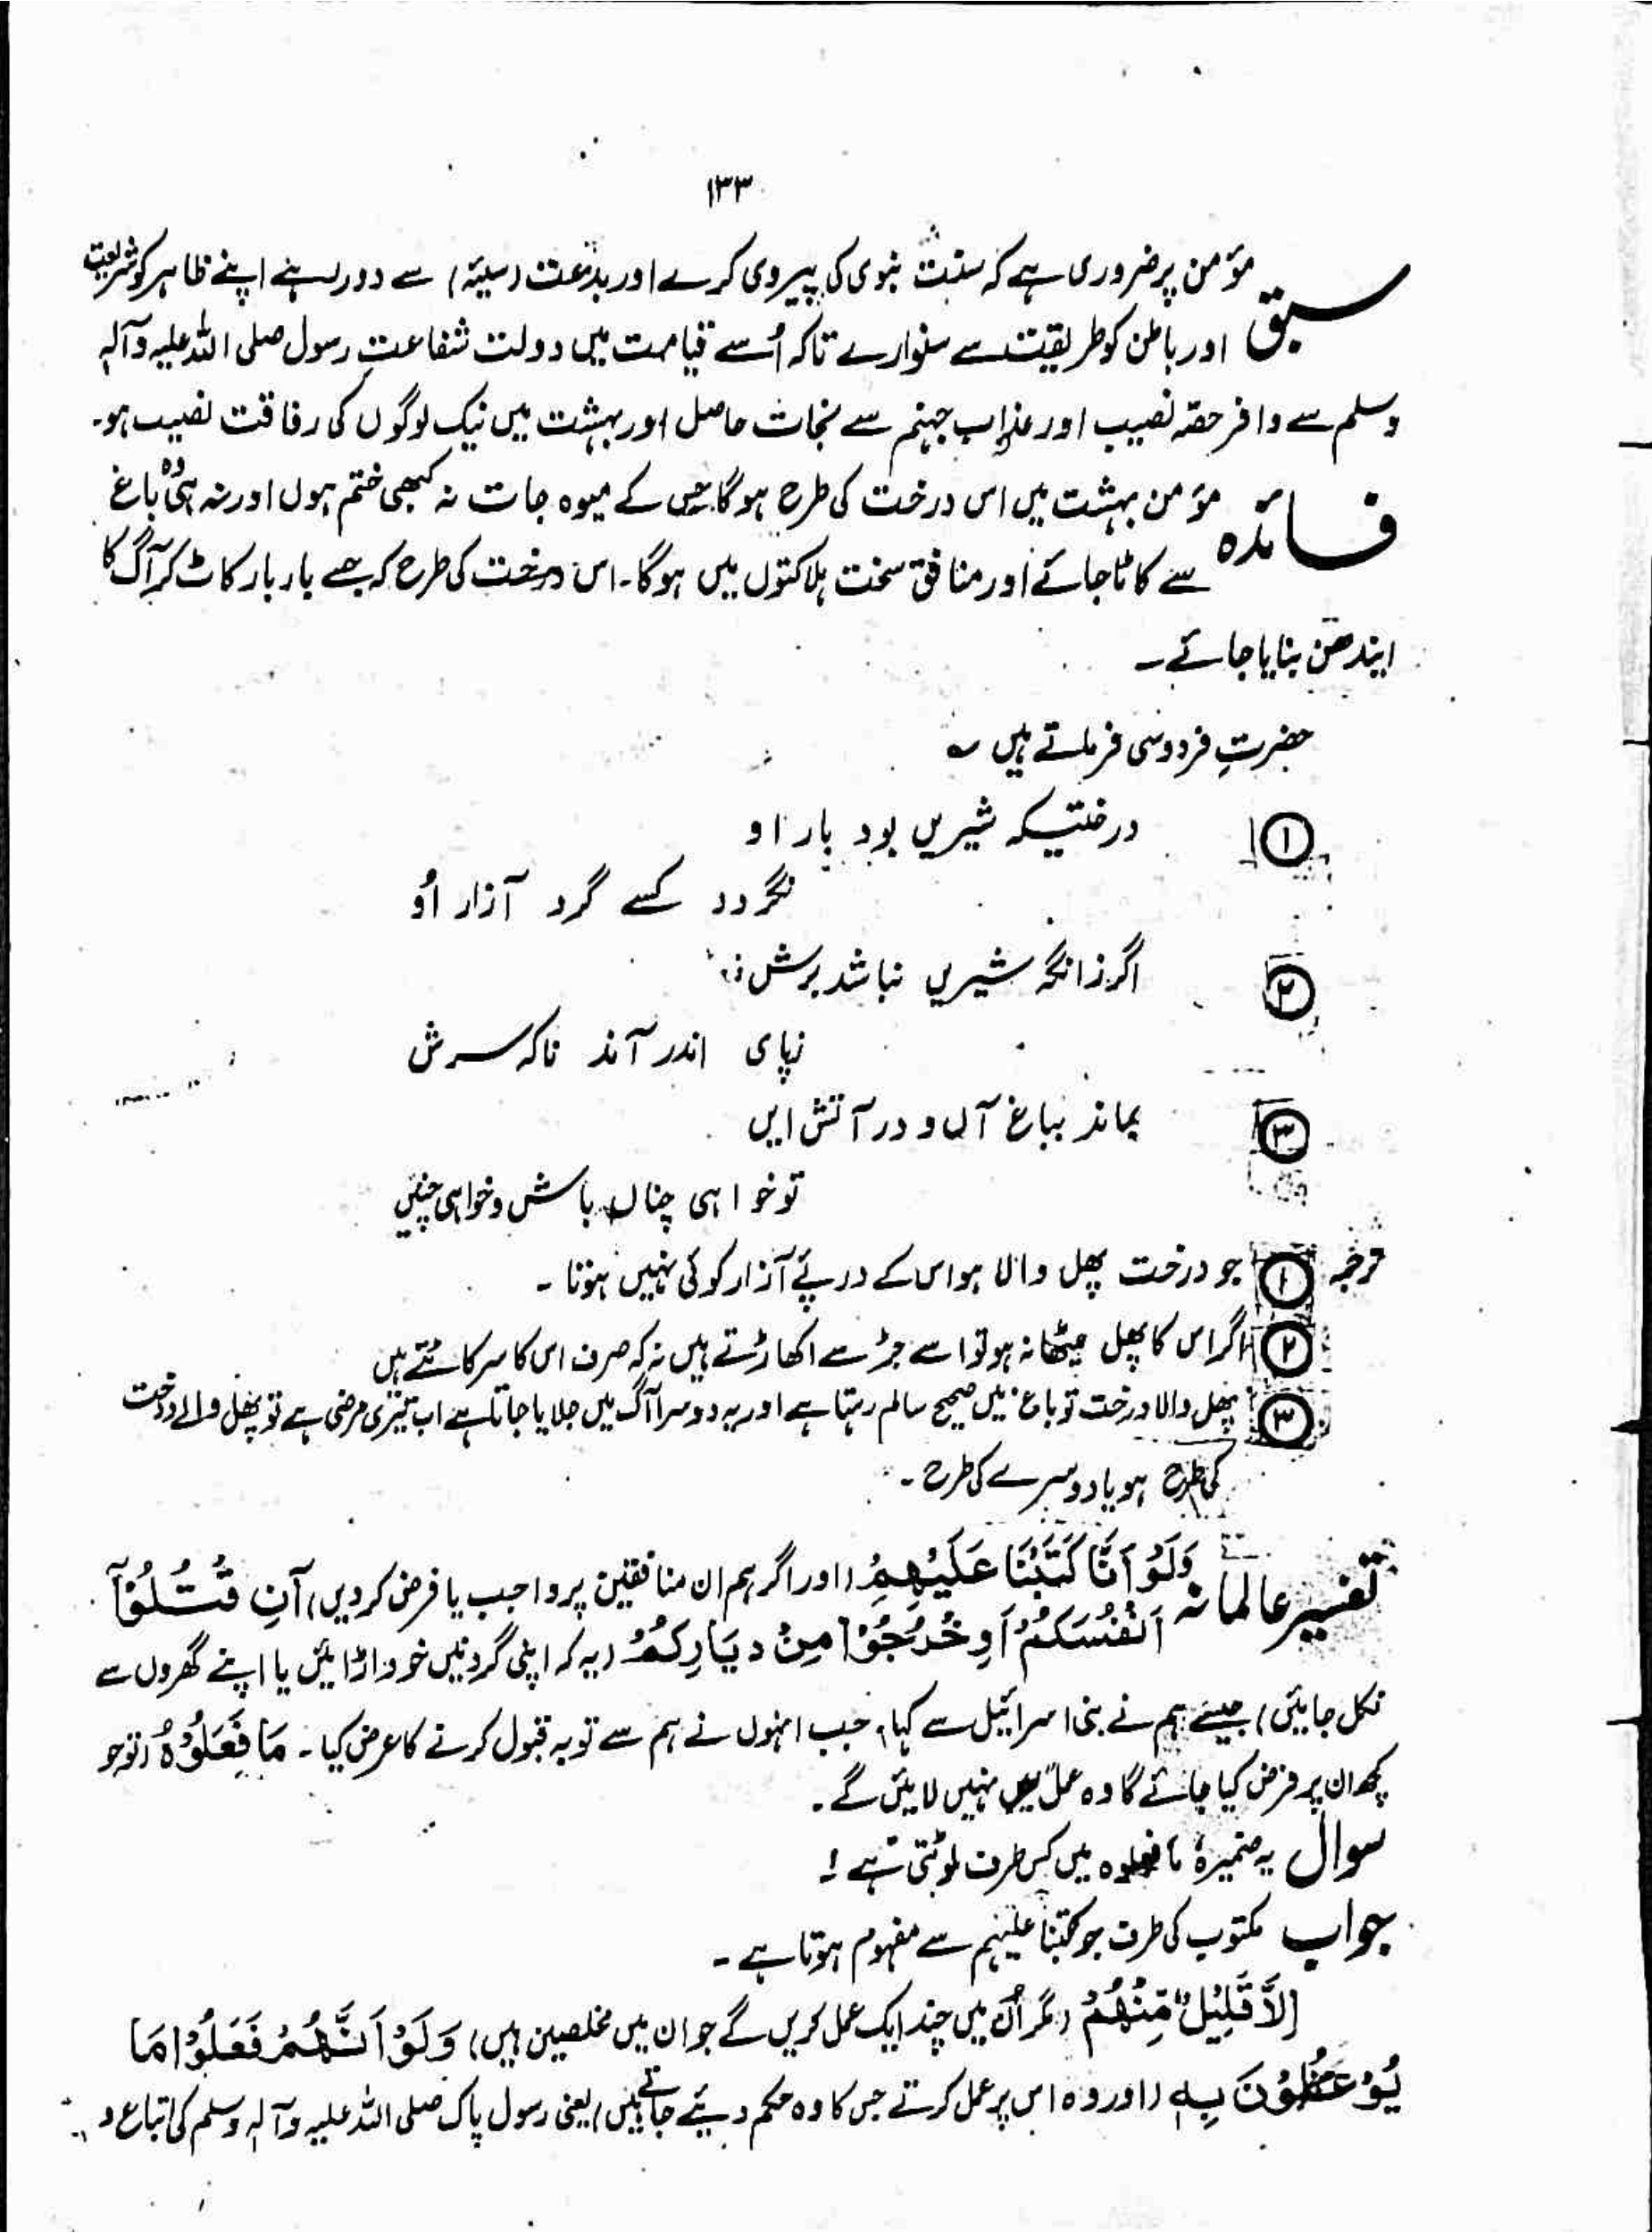 ۱۳۳
سبق مؤمن پر ضروری ہے کہ سنت نبوی کی پیروی کرے اور بدعت (سیئہ) سے دور رہنے اپنے ظاہر کو شریعت
اور باطن کو طریقت سے سنوارے تاکہ اُسے قیامت میں دولت شفاعتِ رسول صلی اللہ علیہ وآلہٖ
وسلم سے وافر حصّہ نصیب اور عذابِ جہنم سے نجات حاصل اور بہشت میں نیک لوگوں کی رفاقت نصیب ہو۔
فائدہ مؤمن بہشت میں اس درخت کی طرح ہوگا جس کے میوہ جات نہ کبھی ختم ہوں اور نہ ہی وُہ باغ
سے کاٹا جائے اور منافق سخت ہلاکتوں میں ہوگا۔ اس درخت کی طرح کہ جسے بار بار کاٹ کر آگ کا
ایندھن بنایا جائے۔
حضرتِ فردوسی فرماتے ہیں ؎
۱ درختیکہ شیریں بود بار او
نگردد کسے گرد آزار اُو
۲ اگر زانکہ شیریں نباشد برش
زپای اندر آند ناکہ سرش
۳ بماند بباغ آں و در آتش ایں
تو خواہی چناں باش و خواہی چنیں
ترجمہ ۱ جو درخت پھل والا ہو اس کے درپئے آزار کوئی نہیں ہوتا۔
۲ اگر اس کا پھل میٹھا نہ ہو تو اسے جڑ سے اکھاڑتے ہیں نہ کہ صرف اس کا سر کاٹتے ہیں
۳ پھل والا درخت تو باغ میں صحیح سالم رہتا ہے اور یہ دوسرا آگ میں جلایا جاتا ہے اب تیری مرضی ہے تو پھل والے درخت
کی طرح ہو یا دوسرے کی طرح۔
تفسیر عالمانہ وَلَوْ اَنَّا كَتَبْنَا عَلَيْهِمْ (اور اگر ہم ان منافقین پر واجب یا فرض کردیں) اَنِ قْتُلُوْٓا
اَنْفُسَكُمْ اَوِ خْرُجُوْا مِنْ دِيَارِكُمْ (یہ کہ اپنی گردنیں خود اڑائیں یا اپنے گھروں سے
نکل جائیں) جیسے ہم نے بنی اسرائیل سے کہا، جب انہوں نے ہم سے توبہ قبول کرنے کا عرض کیا۔ مَا فَعَلُوْهُ (تو جو
کچھ ان پر فرض کیا جائے گا وہ عمل میں نہیں لائیں گے۔
سوال یہ ضمیر ہٗ ما فعلوہ میں کس طرف لوٹتی ہے !
جواب مکتوب کی طرف جو کتبنا علیہم سے مفہوم ہوتا ہے۔
اِلَّا قَلِيْلٌ مِّنْهُمْ (مگر اُن میں چند ایک عمل کریں گے جو ان میں مخلصین ہیں) وَلَوْ اَنَّهُمْ فَعَلُوْا مَا
يُوْعَظُوْنَ بِهٖ (اور وہ اس پر عمل کرتے جس کا وہ حکم دیئے جاتے ہیں) یعنی رسول پاک صلی اللہ علیہ وآلہٖ وسلم کی اتباع و